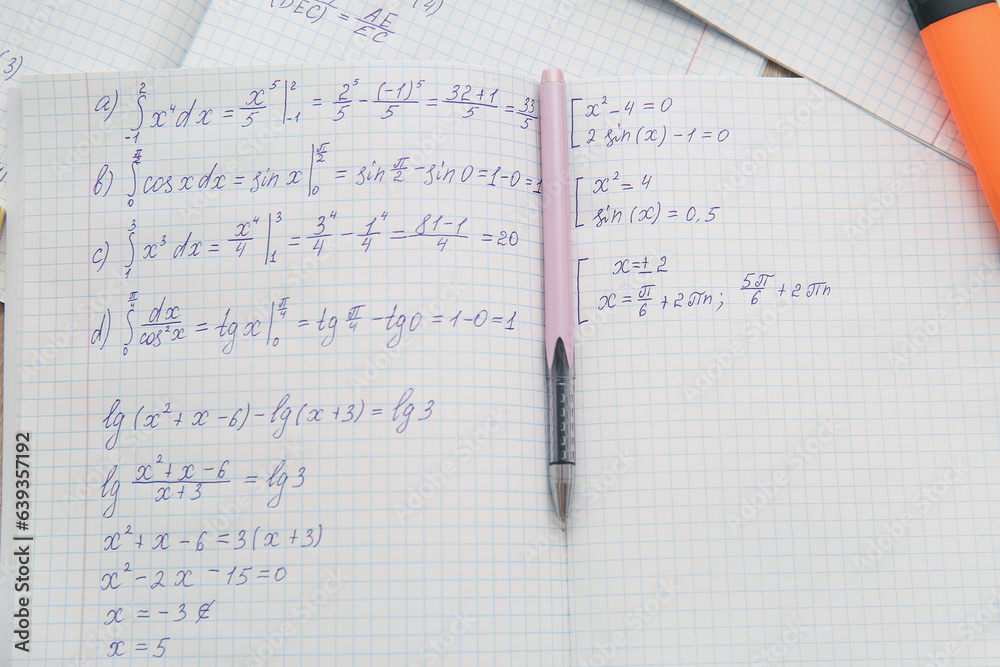 (DEC) = AE/EC (4)
(3)
a) ∫₋₁² x⁴dx = x⁵/5 |₋₁² = 2⁵/5 - (-1)⁵/5 = 32+1/5 = 33/5
b) ∫₀^π/2 cosxdx = sinx |₀^π/2 = sin π/2 - sin0 = 1-0=1
c) ∫₁³ x³dx = x⁴/4 |₁³ = 3⁴/4 - 1⁴/4 = 81-1/4 = 20
d) ∫₀^π/4 dx/cos²x = tgx |₀^π/4 = tg π/4 - tg0 = 1-0=1
lg(x²+x-6)-lg(x+3)=lg3
lg x²+x-6/x+3 = lg3
x²+x-6=3(x+3)
x²-2x-15=0
x=-3 ∉
x=5
[ x²-4=0
2sin(x)-1=0
[ x²=4
sin(x)=0,5
[ x=±2
x=π/6+2πn; 5π/6+2πn
Adobe Stock | #639357192
Adobe Stock